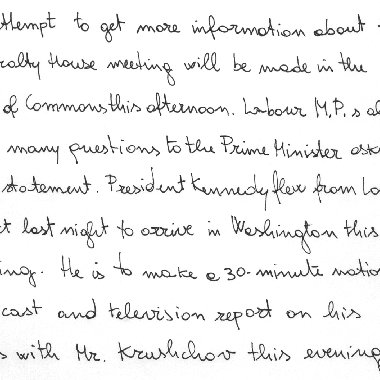 ttempt to get more information about
ralty House meeting will be made in the
of Commons this afternoon. Labour M.P.s al
many questions to the Prime Minister ask
statement. President Kennedy flew from Lo
t last night to arrive in Washington this
ing. He is to make a 30-minute nation
cast and television report on his
s with Mr. Krushchov this evening